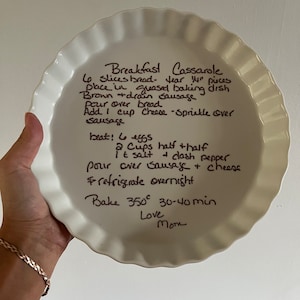 Breakfast Casserole
6 slices bread - tear 1/4" pieces
place in greased baking dish
Brown + drain sausage
pour over bread
Add 1 cup cheese - sprinkle over
sausage
beat: 6 eggs
2 cups half + half
1 t salt + dash pepper
pour over sausage + cheese
refrigerate overnight
Bake 350° 30-40 min
Love
Mom